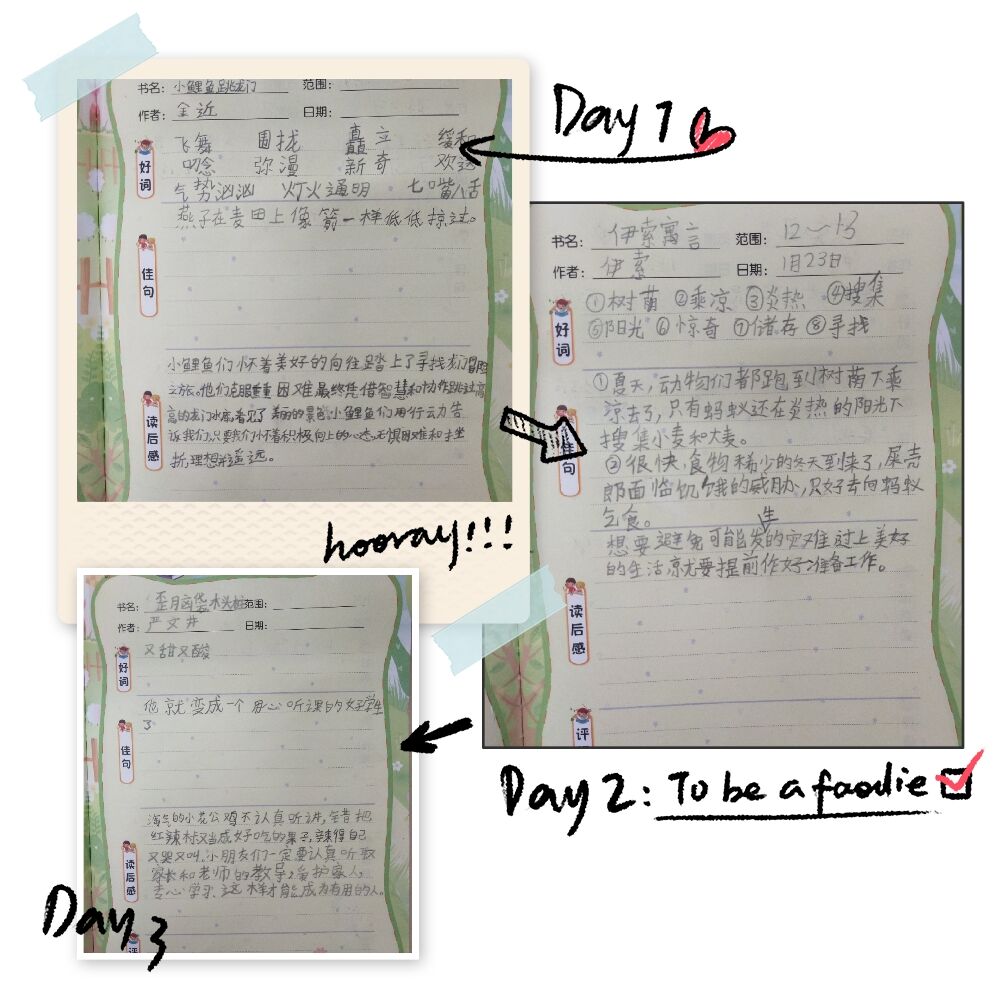 Day 1
书名：小鲤鱼跳龙门 范围：
作者：金近 日期：
好词
飞舞 围拢 矗立 缓和
叨念 弥漫 新奇 欢送
气势汹汹 灯火通明 七嘴八舌
佳句
燕子在麦田上像箭一样低低掠过。
读后感
小鲤鱼们怀着美好的向往踏上了寻找龙门冒险
之旅。他们克服重重困难最终凭借智慧和协作跳过高
高的龙门水底,看见了美丽的景色小鲤鱼们用行动告
诉我们,只要我们怀着积极向上的心态,无惧困难和挫
折,理想并遥远。
hooray!!!
书名：伊索寓言 范围：12～13
作者：伊索 日期：1月23日
好词
①树荫 ②乘凉 ③炎热 ④搜集
⑤阳光 ⑥惊奇 ⑦储存 ⑧寻找
佳句
①夏天,动物们都跑到树荫下乘
凉去了,只有蚂蚁还在炎热的阳光下
搜集小麦和大麦。
②很快,食物稀少的冬天到来了,屎壳
郎面临饥饿的威胁,只好去向蚂蚁
乞食。
读后感
想要避免可能发生的灾难过上美好
的生活就要提前作好准备工作。
评
Day 2: To be a foodie
书名：歪脑袋木头桩 范围：
作者：严文井 日期：
好词
又甜又酸
佳句
他就变成一个用心听课的好学生
了
读后感
淘气的小花公鸡不认真听讲,错把
红辣椒当成好吃的果子,辣得自己
又哭又叫。小朋友们一定要认真听取
家长和老师的教导,爱护家人,
专心学习,这样才能成为有用的人。
评
Day 3